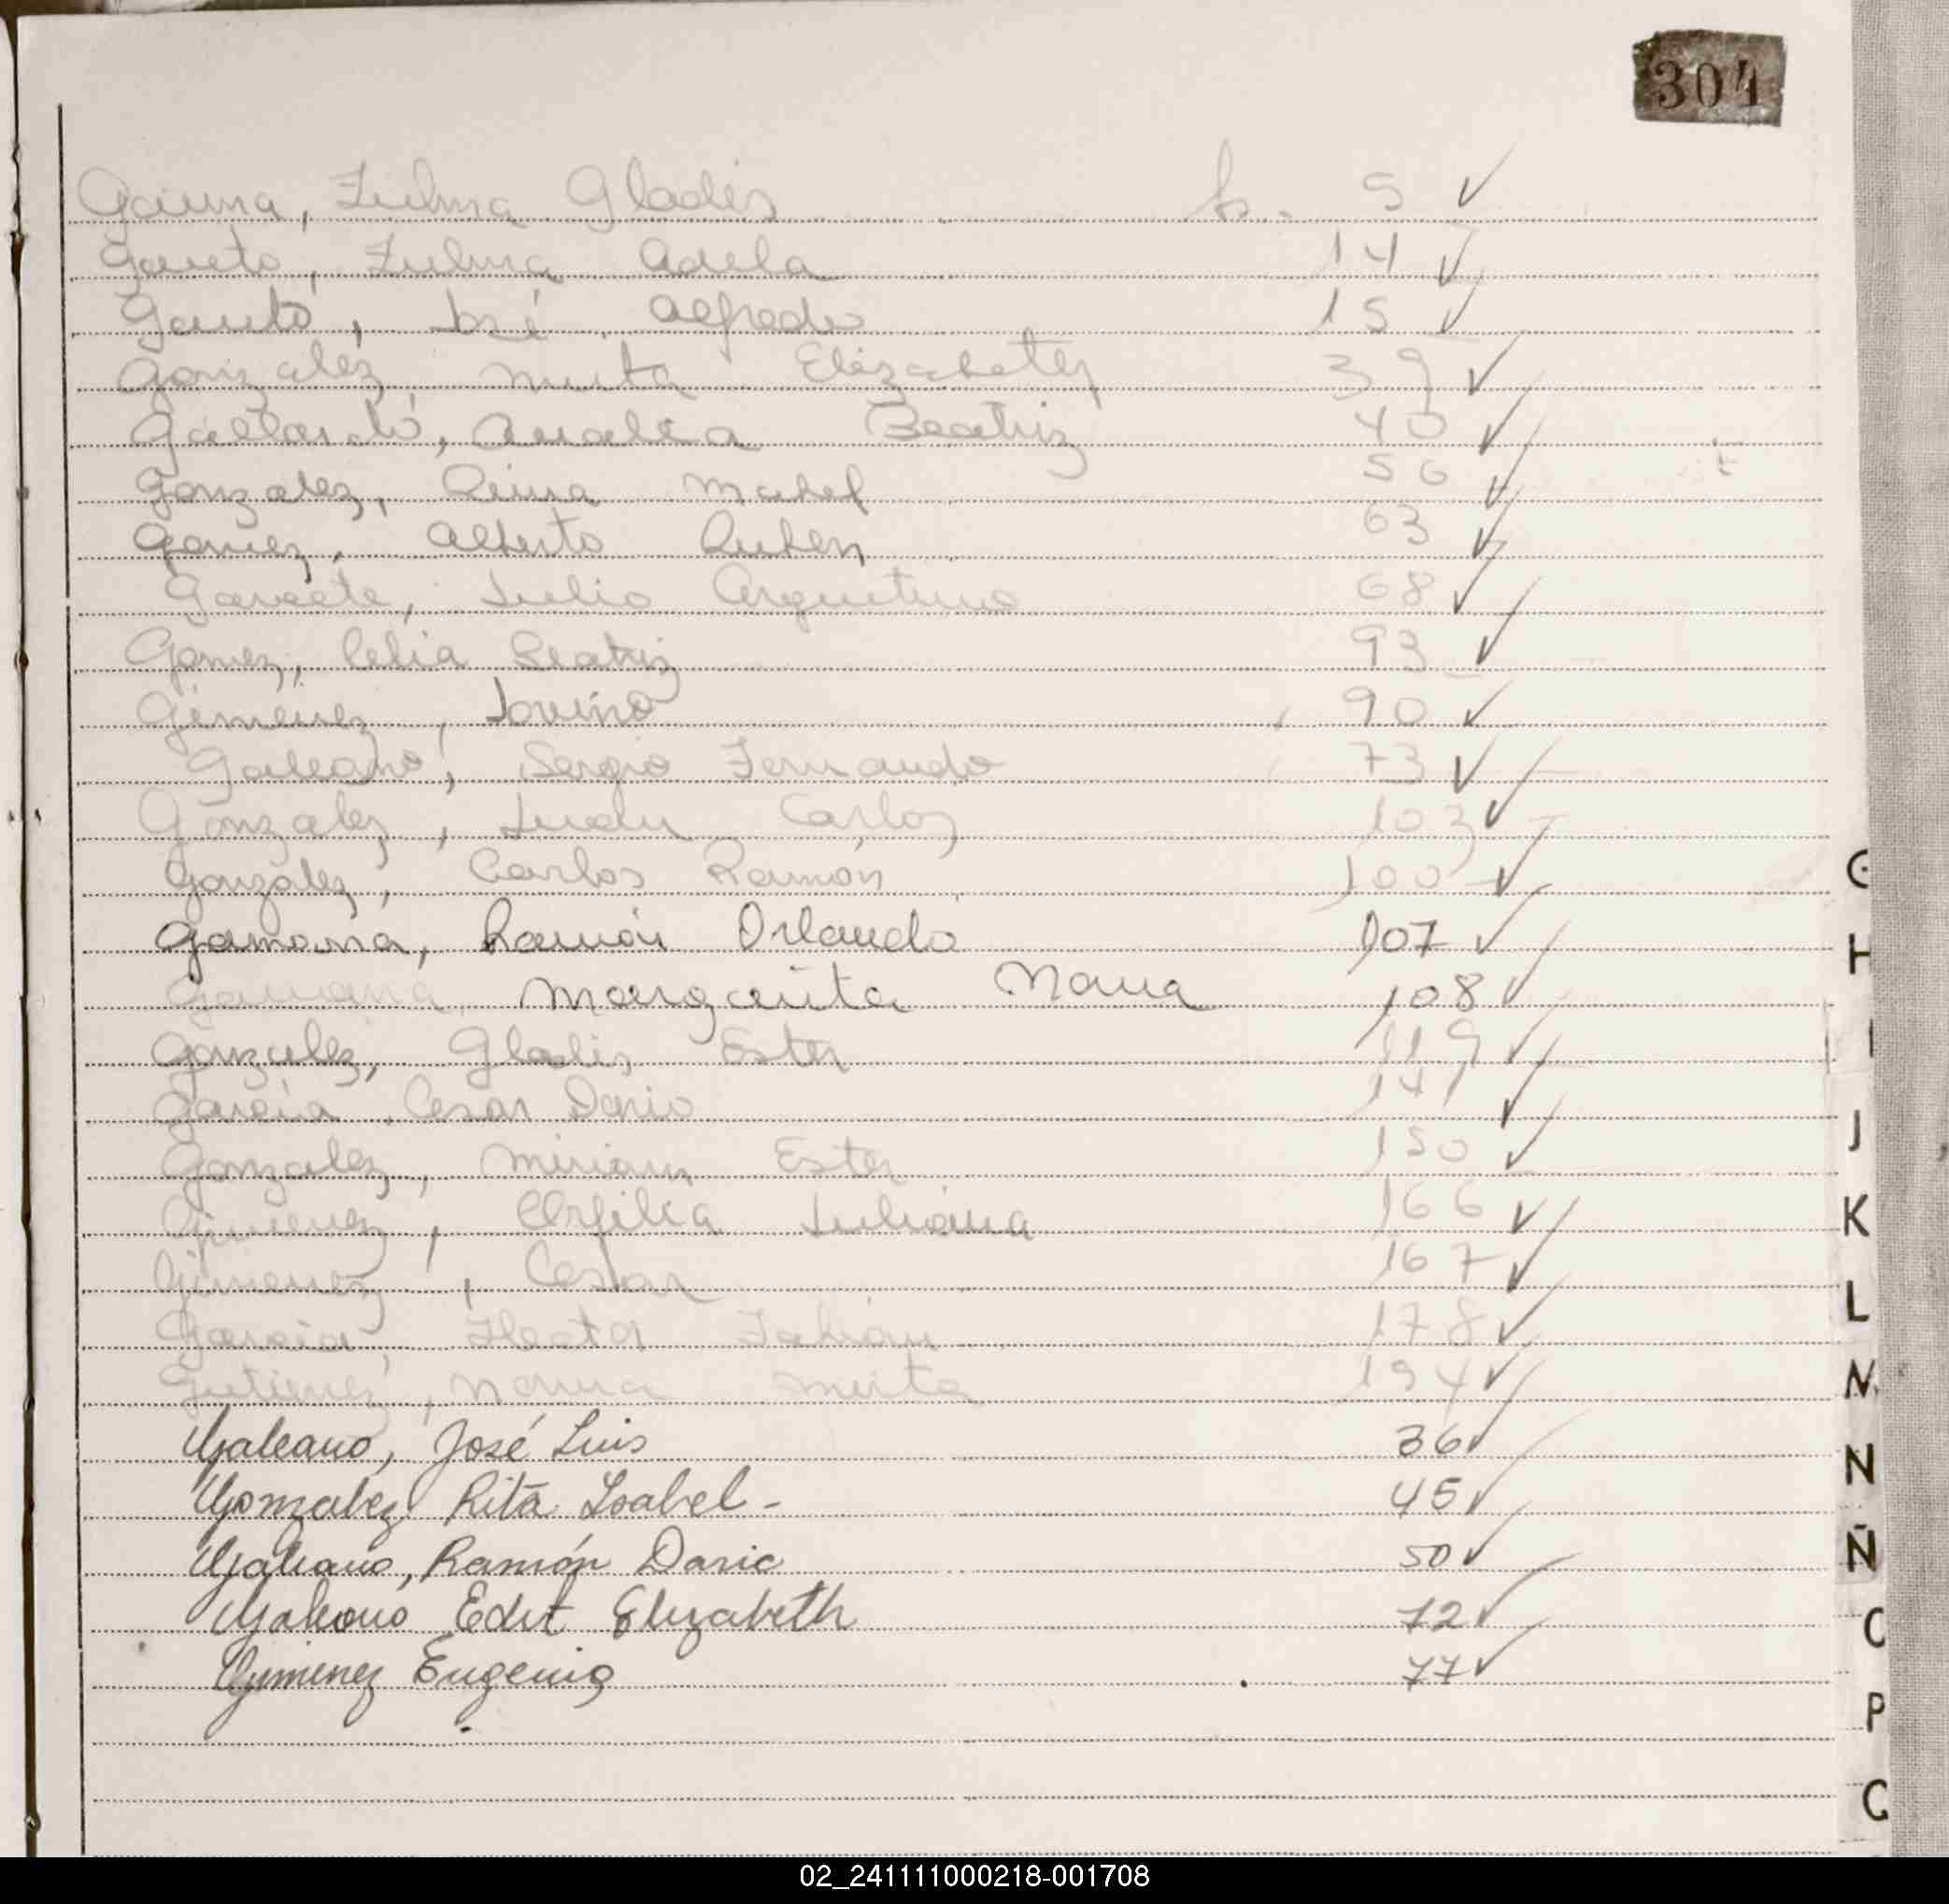 304
Gauna, Zulma Gladis fs. 5 ✓
Gauto, Zulma Adela 14 ✓
Gauto, José Alfredo 15 ✓
Gonzalez Mirta Elizabeth 39 ✓
Gallardo, Analia Beatriz 40 ✓
Gonzalez, Reina Mabel 56 ✓
Gomez, Alberto Ruben 63 ✓
Julio Argentino 68 ✓
Gomez, Celia Beatriz 93 ✓
Gimenez, Jovino 90 ✓
Galeano, Sergio Fernando 73 ✓
Gonzalez, Carlos 103 ✓
Gonzalez, Carlos Ramón 100 ✓
Gamarra, Ramón Orlando 107 ✓
Gamarra, Margarita Maria 108 ✓
Gonzalez, Gladis Ester 119 ✓
Garcia, Cesar Dario 141 ✓
Gonzalez, Miriam Ester 150 ✓
Gimenez, Orfilia Juliana 166 ✓
Gimenez, Cesar 167 ✓
Garcia, Hector Fabian 178 ✓
Gutierrez, Norma Mirta 194 ✓
Galeano, José Luis 36 ✓
Gonzalez Rita Isabel - 45 ✓
Galeano, Ramón Dario 50 ✓
Galeano Edit Elizabeth 72 ✓
Gimenez Eugenia 77 ✓
G
H
I
J
K
L
M
N
Ñ
O
P
Q
02_241111000218-001708